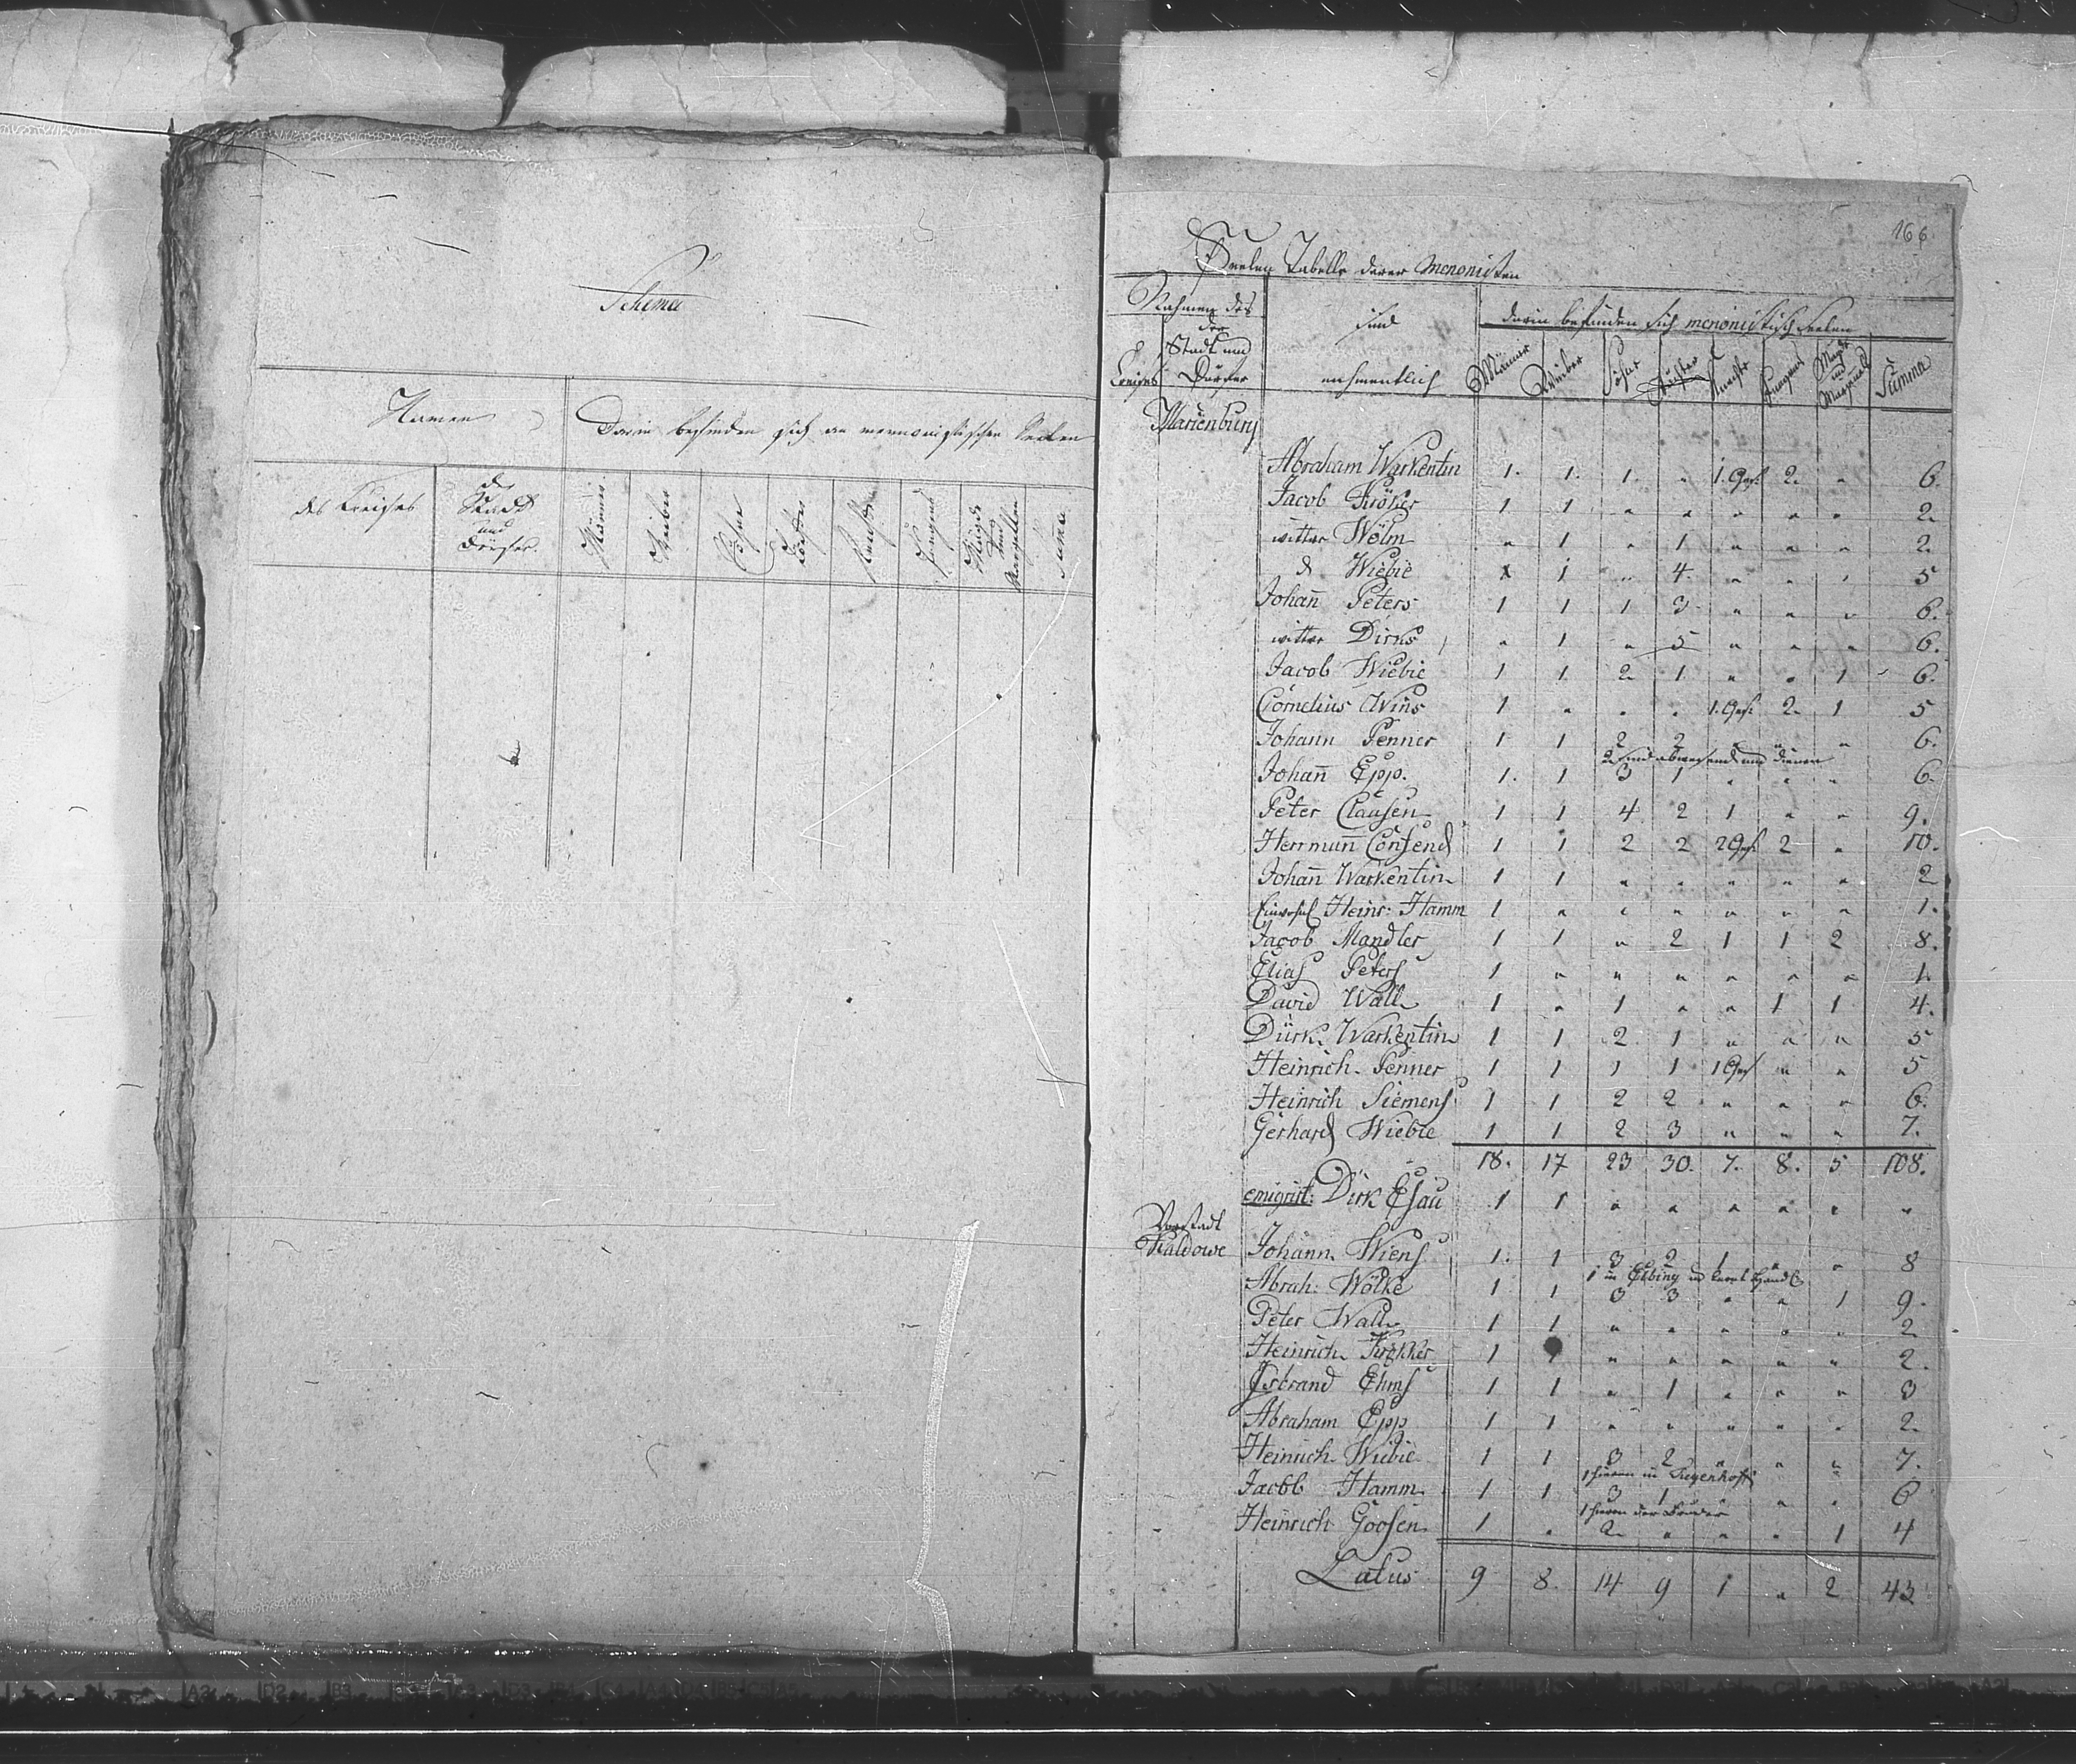 Schema
Namen
Darin befinden sich an mennonistischen Seelen
des Creises
der
Stadt
und
Dörfer.
Männer.
Weiber
Söhne
Töchter
Knechte
Jungens
Mägde
und
Margellen
Suma
166.
Seelen Tabelle derer Menonisten
Nahmen des
Creises
der
Stadt und
Dörfer
sind
nahmentlich
darin befinden sich menonistisch Seelen
Männer
Weiber
Söhne
Töchter
Knechte
Jungens
Mägde
und
Summa
Marienburg
Abraham Warkentin 1. 1. 1. " 1. Ges. 2. " 6.
Jacob Kröker 1 1 " " " " " 2.
wittwe Wölm " 1 " 1 " " " 2.
d Wiebe x 1 " 4. " " " 5
Johañ Peters 1 1 1 3 " " " 6.
wittwe Dirks " 1 " 5 " " " 6.
Jacob Wiebe 1 1 2 1 " " 1 6.
Cornelius Wins 1 " " " 1. Ges. 2. 1 5
Johann Penner 1 1 2 2 " " " 6.
2 sind abwesend und dienen
Johañ Epp. 1. 1 3 1 " " " 6.
Peter Clausen 1 1 4 2 1 " " 9.
Herrmañ Consend 1 1 2 2 2 Ges. 2 " 10.
Johañ Warkentin 1 1 " " " " " 2
Heinr: Hamm 1 " " " " " " 1.
Jacob Mandler 1 1 " 2 1 1 2 8.
Elias Peters 1 " " " " " " 1.
David Wall 1 " 1 " " 1 1 4.
Dürk. Warkentin 1 1 2 1 " " " 5
Heinrich Penner 1 1 1 1 1 Ges " " 5
Heinrich Siemens 1 1 2 2 " " " 6.
Gerhard Wiebe 1 1 2 3 " " " 7.
18. 17 23 30. 7. 8. 5 108.
emigrirt: Dirk Esau 1 1 " " " " " "
Vorstadt
Kaldowe
Johann Wiens 1. 1 3 2 1 " " 8
1 in Elbing
Abrah: Wölke 1 1 3 3 " " 1 9.
Peter Wall 1 1 " " " " " 2
Heinrich Krökker 1 1 " " " " " 2.
Isbrand Ehms 1 1 " 1 " " " 3
Abraham Epp 1 1 " " " " " 2.
Heinrich Wiebe 1 1 3 2 " " " 7.
1 hievon in Tiegenhoff
Jacob Hamm 1 1 3 1 " " " 6
1 hievon der Bruder
Heinrich Goosen 1 " 2 " " " 1 4
Latus 9 8 14 9 1 " 2 43